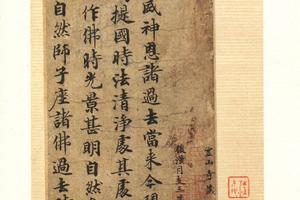 山寺藏
後漢月支三
威神恩諸過去當來今現
提國時法清淨處其處
作佛時光景甚明自然
自然師子座諸佛過去